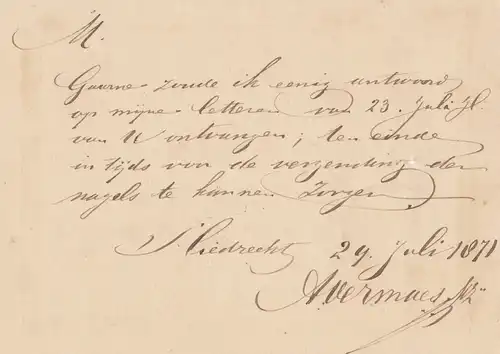 M.
Gaarne zoude ik eenig antwoord
op mijne letteren van 23. Juli Jl.
van U ontvangen; ten einde
in tijds voor de verzending der
nagels te kunnen zorgen
Sliedrecht 29. Juli 1871
A Vermaes